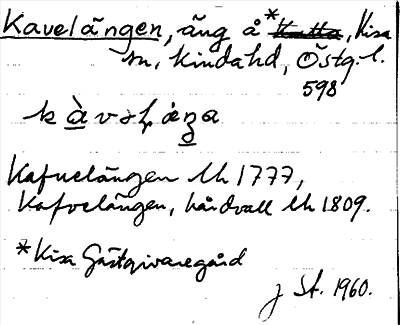 Kavelängen, äng å * Kisa
sn, Kinda hd, Östg. l.
598
Kafvelängen lh 1777,
Kafvelängen, hårdvall lh 1809.
* Kisa Gästgivaregård
J St. 1960.